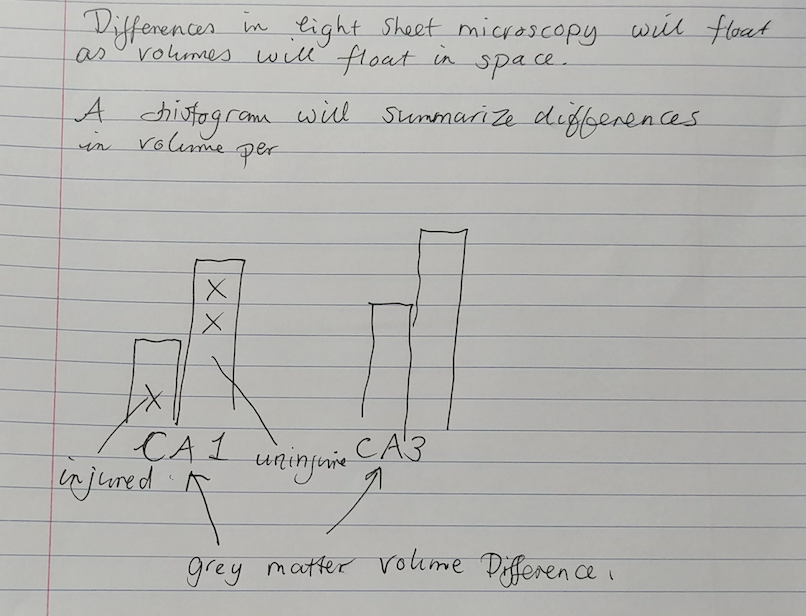 Differences in light sheet microscopy will float
as volumes will float in space.
A histogram will summarize differences
in volume per
X
X
X
CA1
uninjure
CA3
injured.
grey matter volume Difference.